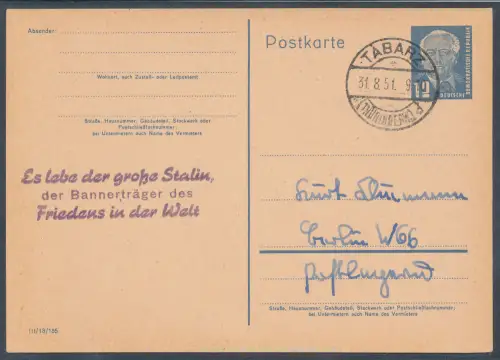 Absender:
Wohnort, auch Zustell- oder Leitpostamt
Straße, Hausnummer, Gebäudeteil, Stockwerk oder
Postschließfachnummer;
bei Untermietern auch Name des Vermieters
Es lebe der große Stalin,
der Bannerträger des
Friedens in der Welt
III/18/185
Postkarte
TABARZ
31.8.51. 9
(THÜRINGERW.)
12
DEUTSCHE
DEMOKRATISCHE REPUBLIK
Kurt
Berlin W66
postlagernd
Straße, Hausnummer, Gebäudeteil, Stockwerk oder Postschließfachnummer;
bei Untermietern auch Name des Vermieters